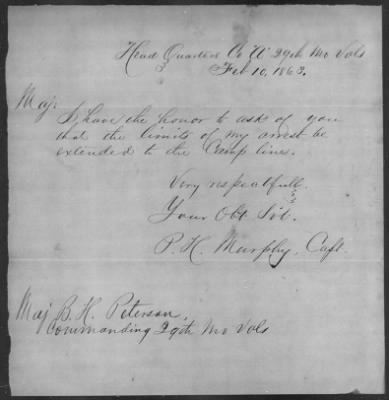 Head Quarters Co "A" 29th Mo Vols
Feb 10, 1863.
Maj:
I have the honor to ask of you
that the limits of my arrest be
extended to the Camp lines.
Very respectfull
Your Obt Svt.
P. H. Murphy, Capt.
Maj B. H. Peterson,
Commanding 29th Mo Vols